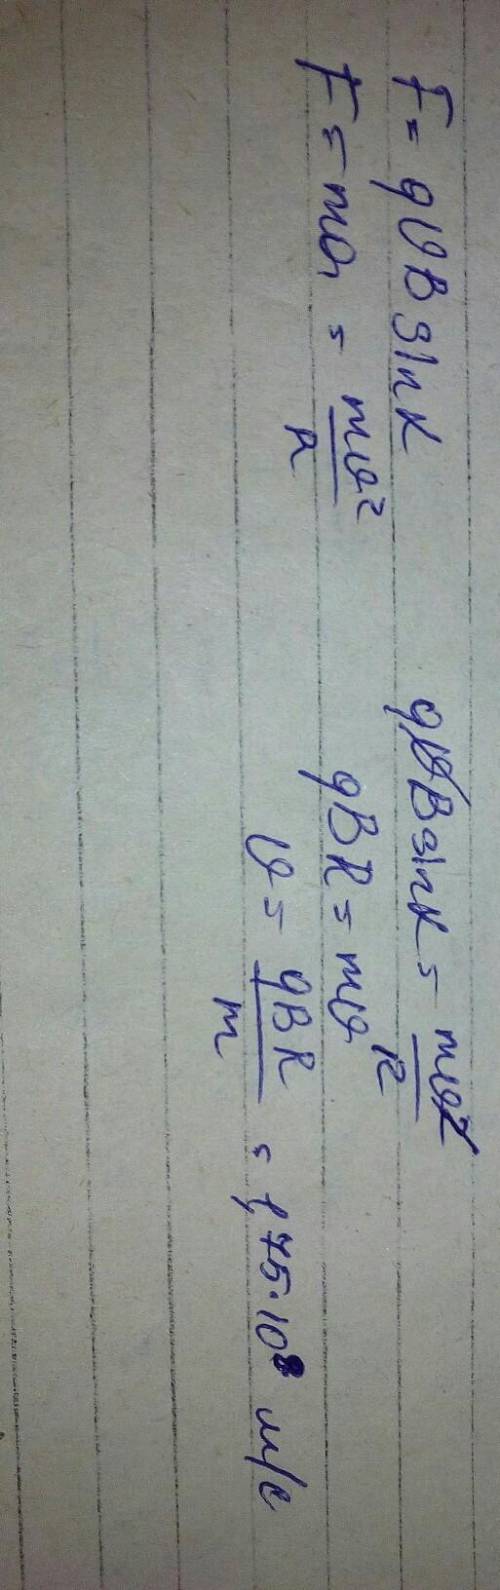 F = qυB sin α
F = ma = mυ²/R
qυB sin α = mυ²/R
qBR = mυ
υ = qBR/m = 1,75·10⁸ м/с